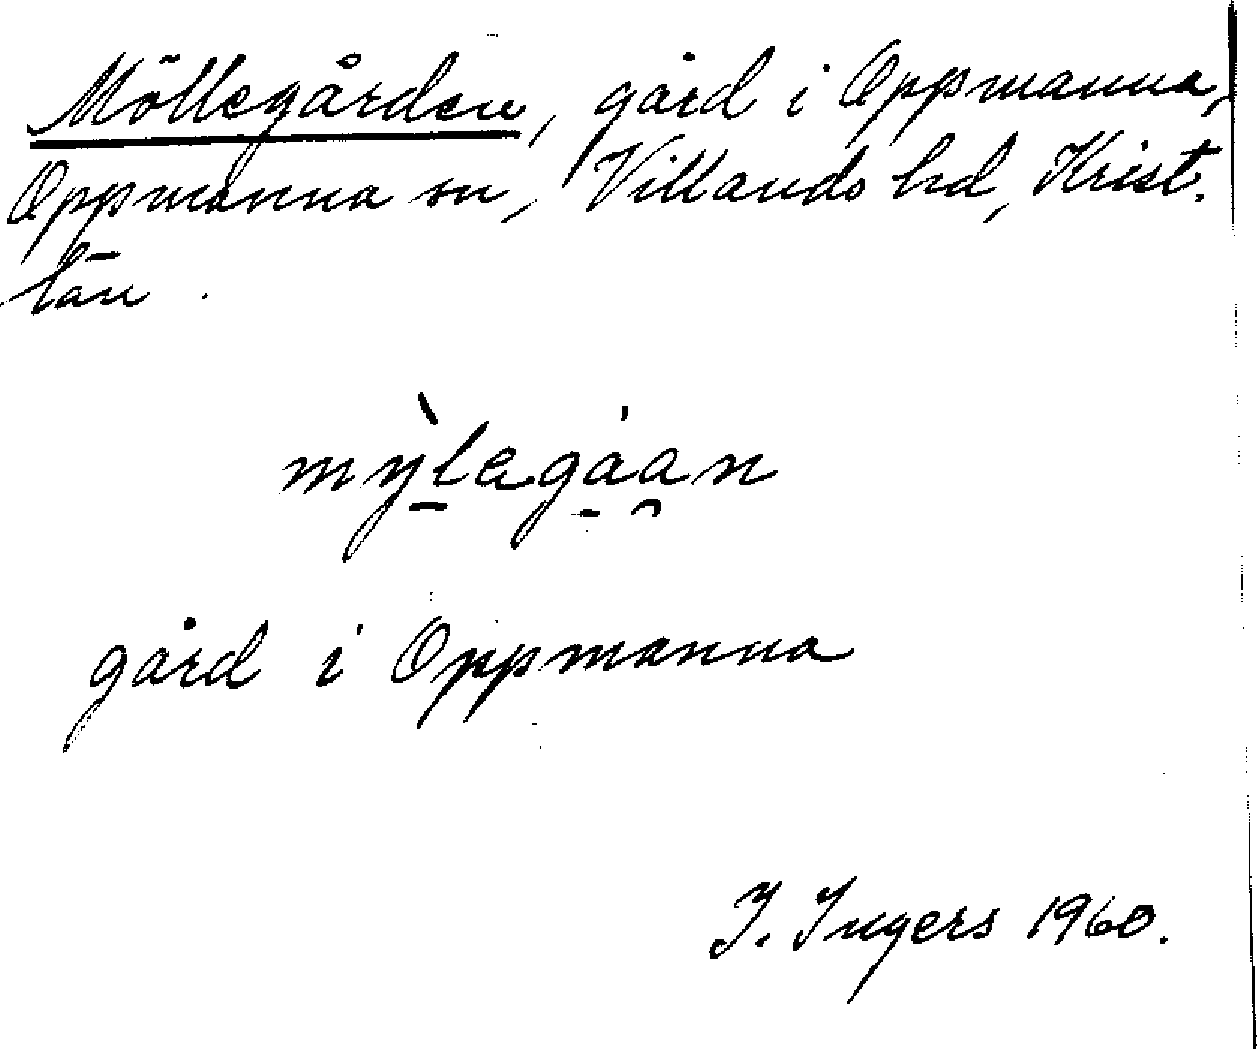 Möllegården, gård i Oppmanna,
Oppmanna sn, Villands hd, Krist.
län.
mỳlegáan
gård i Oppmanna
I. Ingers 1960.